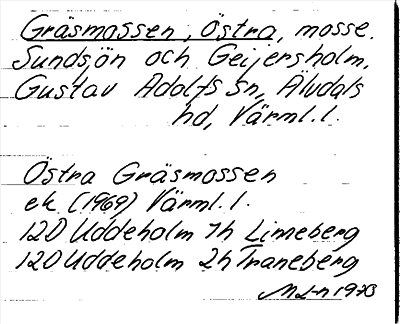 Gräsmossen, Östra, mosse.
Sundsjön och Geijersholm,
Gustav Adolfs sn, Älvdals
hd, Värml. l.
Östra Gräsmossen
ek (1969) Värml. l.
120 Uddeholm 7h Limeberg
120 Uddeholm 2h Traneberg
1973